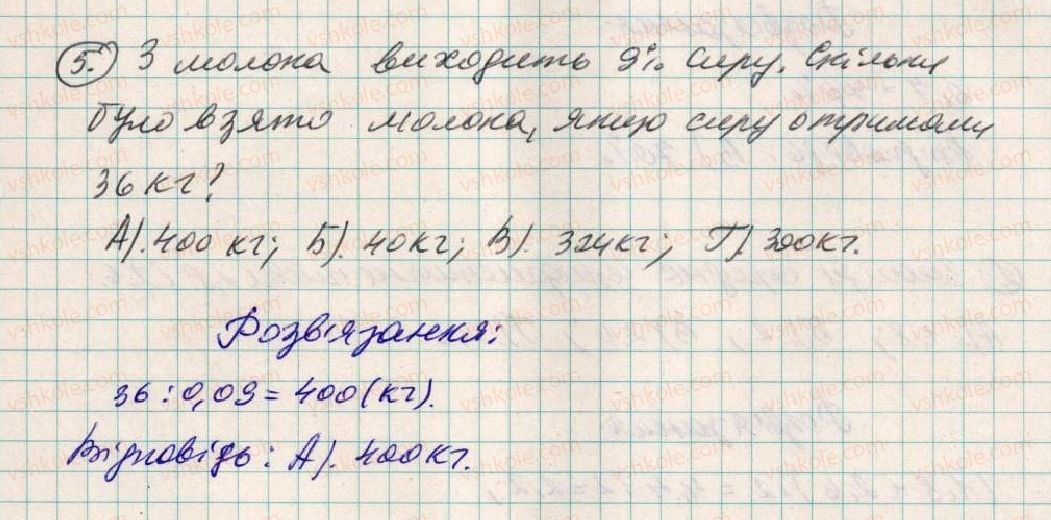 5. З молока виходить 9% сиру. Скільки
було взято молока, якщо сиру отримали
36 кг?
А). 400 кг; Б). 40 кг; В). 324 кг; Г). 300 кг.
Розв'язання:
36 : 0,09 = 400 (кг).
Відповідь: А). 400 кг.